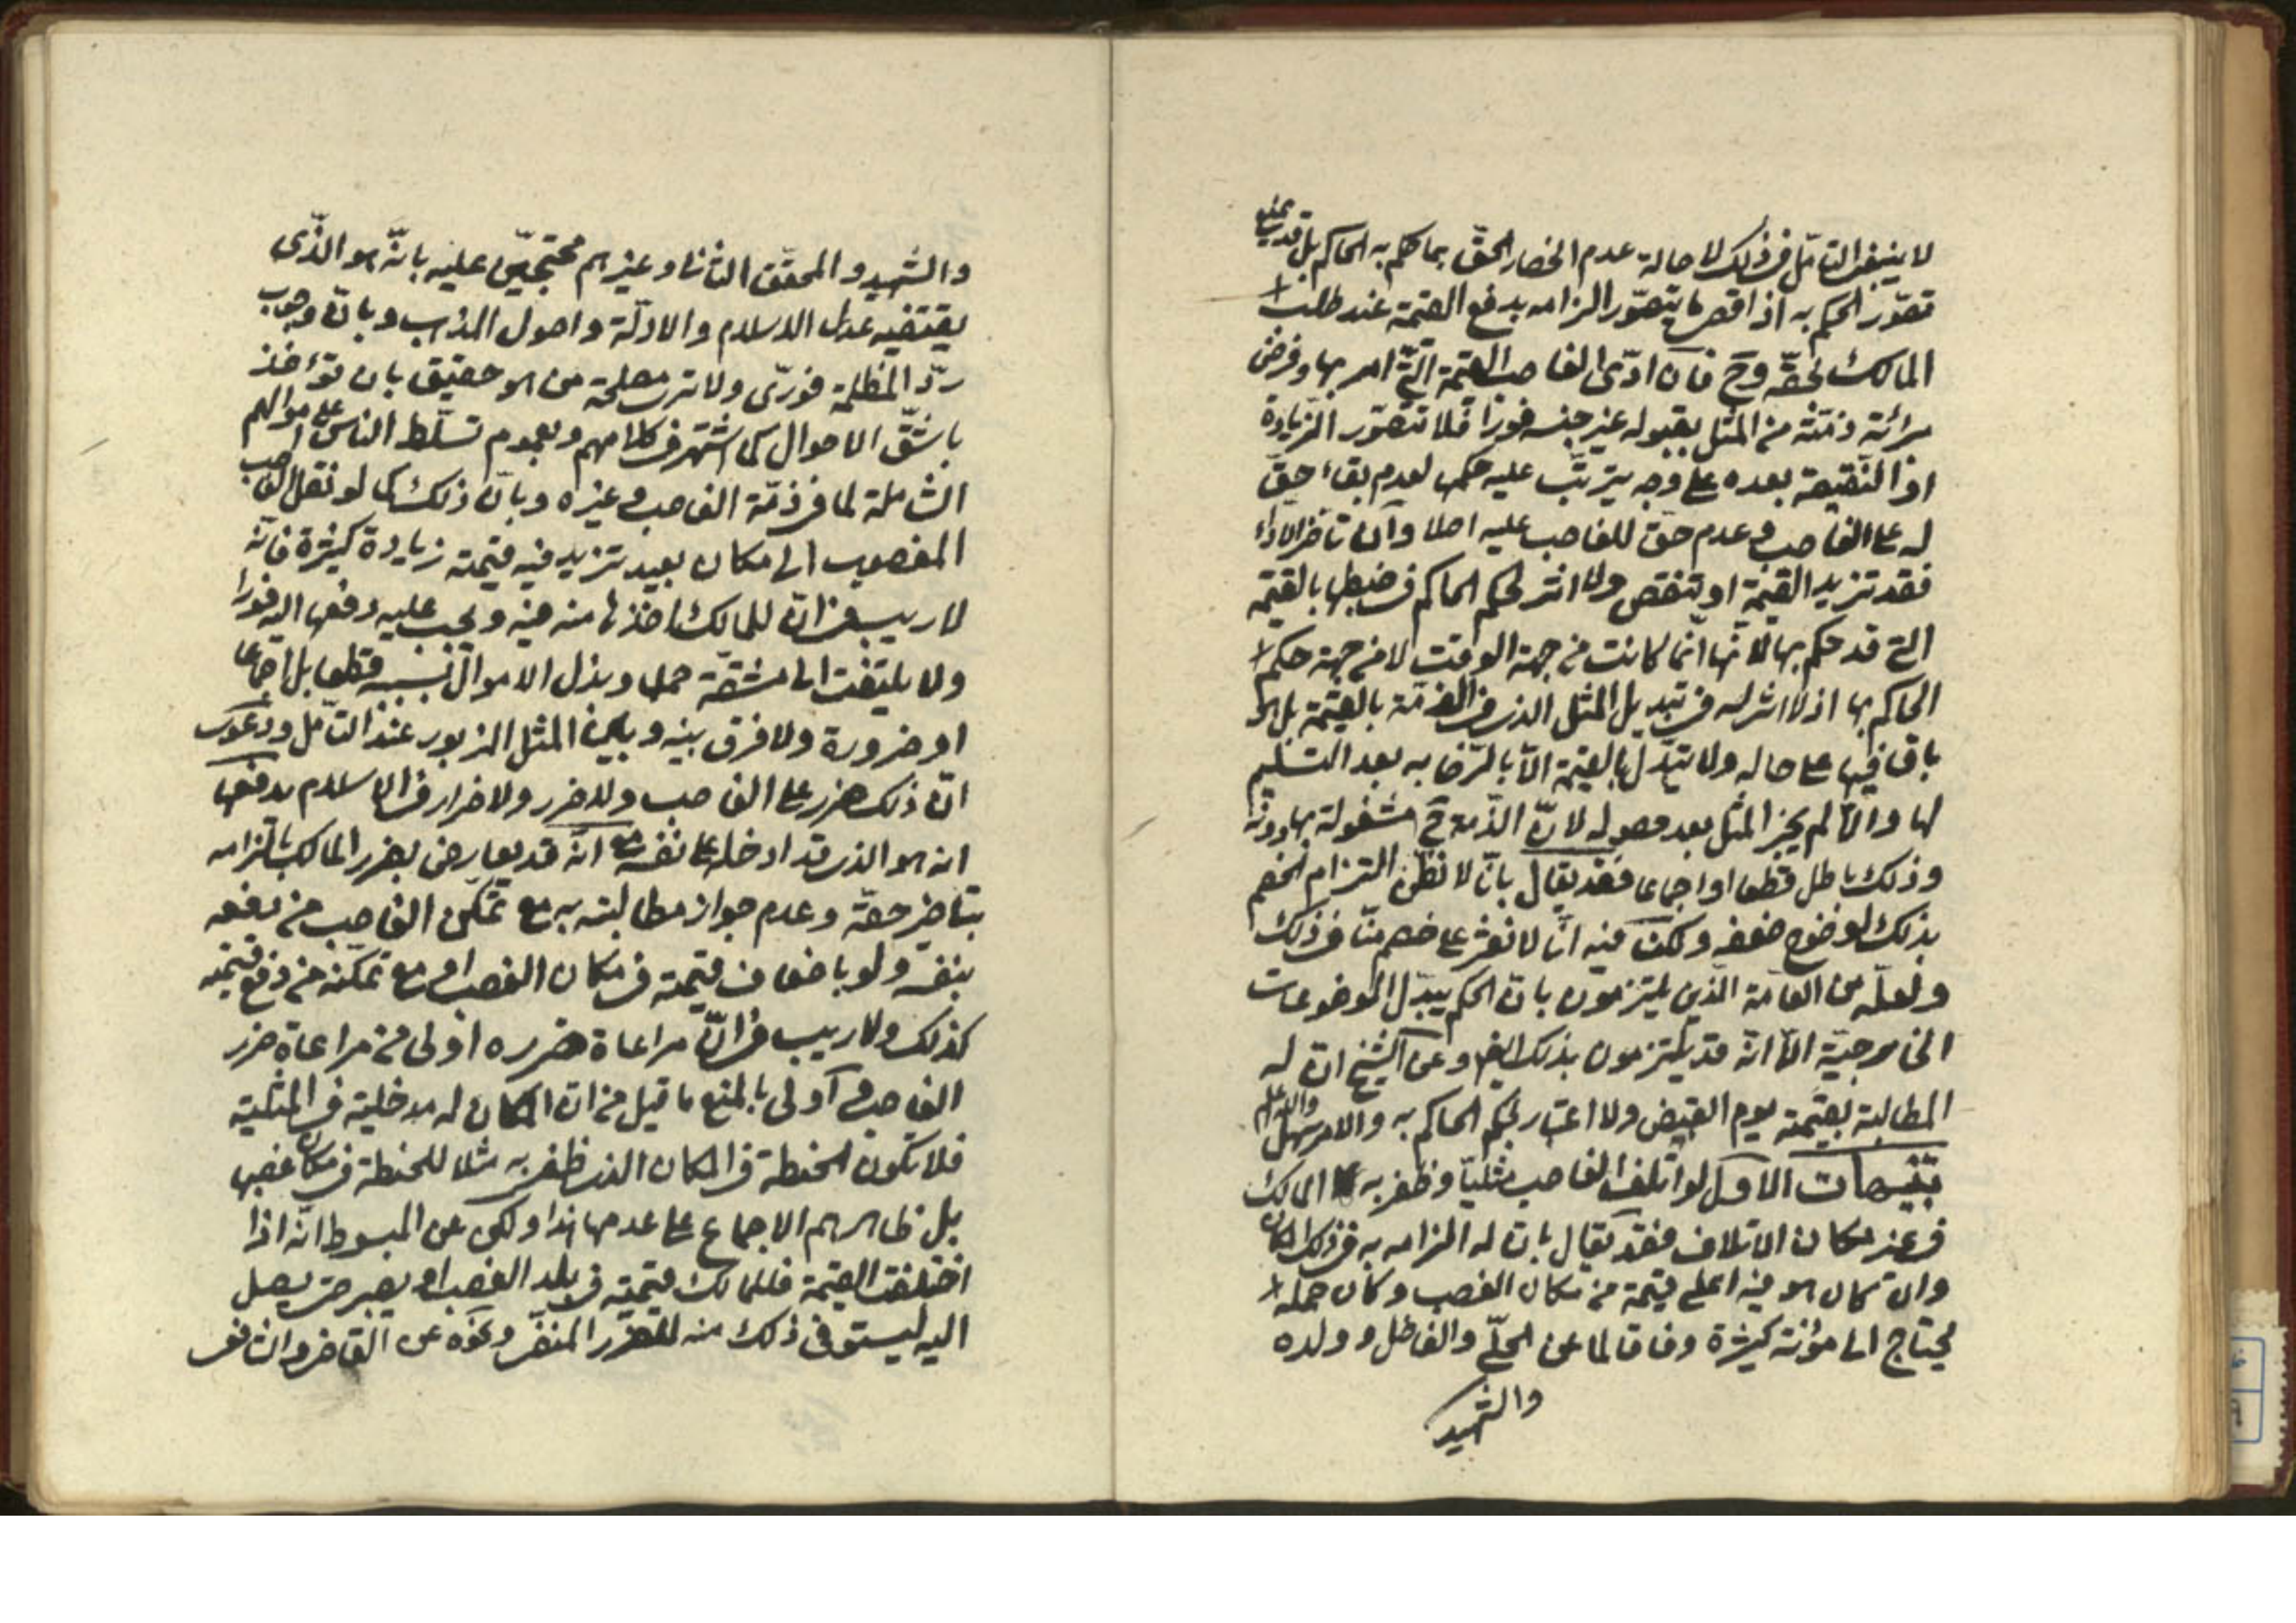 لا ينبغى التامّل فى ذلك لاصالة عدم انحصار الحقّ بما حكم به الحاكم بل قد يمنع
تصوّر الحكم به اذ اقصى ما يتصوّر الزامه بدفع القيمة عند طلب
المالك لحقّه وح فان ادّى الغاصب القيمة الّتى امر بها وفرض
برائة ذمّته من المثل بقبوله عن جنسه فورا فلا تتصوّر الزيادة
او النقيصة بعده على وجه يترتّب عليه حكمها لعدم بقاء حقّ
له على الغاصب وعدم حقّ للغاصب عليه اصلا وان تاخر الاداء
فقد تزيد القيمة او تنقص ولا اثر لحكم الحاكم فى ضبطها بالقيمة
التى قد حكم بها لانّها انّما كانت من جهة الوقت لا من جهة حكم
الحاكم بها اذ لا اثر له فى تبديل المثل الذى فى الذمّة بالقيمة بل هو
باق فيها على حاله ولا يتبدّل بالقيمة الّا بالرّضا به بعد التسليم
لها والّا لم يجز المثل بعد حصوله لانّ الذّمة ح مشغولة بها دونه
وذلك باطل قطعا او اجماعا فقد يقال بانّا لا نظنّ التزام الخصم
بذلك لوضوح ضعفه ولكن فيه انّا لا نعثر على خصم منّا فى ذلك
ولعلّه من العامّة الذين يلتزمون بانّ الحكم يبدّل الموضوعات
الخارجيّة الّا انّه قد يلتزمون بذلك ايضا وعن الشيخ انّ له
المطالبة بقيمته يوم القبض ولا اعتبار بحكم الحاكم به والامر سهل والله اعلم
تنبيهات الاوّل لو اتلف الغاصب مثليّا وظفر به المالك
فى غير مكان الاتلاف فقد يقال بانّ له الزامه به فى ذلك المكان
وان كان هو فيه اعلى قيمة من مكان الغصب وكان حمله
يحتاج الى مؤنة كثيرة وفاقا لما عن الحلّى والفاضل وولده
والشهيد
والشهيد والمحقّق الثانى وغيرهم محتجّين عليه بانّه هو الذّى
يقتضيه عدل الاسلام والادلّة واصول المذهب وبانّ وجوب
ردّ المظلمة فورىّ ولا ترى مصلحة من هو حقيق بان تؤخذ
باشقّ الاحوال كما اشتهر فى كلامهم وبعموم تسلّط الناس على اموالهم
الشاملة لما فى ذمّة الغاصب وغيره وبانّ ذلك كما لو نقل الغاصب
المغصوب الى مكان بعيد تزيد فيه قيمته زيادة كثيرة فانّه
لا ريب فى انّ للمالك اخذها منه فيه ويجب عليه دفعها اليه فورا
ولا يلتفت الى مشقّة حملها وبذل الاموال بسببه قطعا بل اجماعا
او ضرورة ولا فرق بينه وبين المثل المزبور عند التأمّل ودعوى
انّ ذلك ضرر على الغاصب ولا ضرر ولا ضرار فى الاسلام يدفعها
انه هو الذى قد ادخله على نفسه مع انّه قد يعارض بضرر المالك بالزامه
بتاخير حقّه وعدم جواز مطالبته به مع تمكّن الغاصب من دفعه
بنفسه ولو باضعاف قيمته فى مكان الغصب او مع تمكّنه من دفع قيمته
كذلك ولا ريب فى انّ مراعاة ضرره اولى من مراعاة ضرر
الغاصب وأولى بالمنع ما قيل من انّ المكان له مدخلية فى المثلية
فلا تكون الحنطة فى المكان الذى ظفر به مثلا للحنطة فى مكان غصبها
بل ظاهرهم الاجماع على عدمها هذا وحكى عن المبسوط انّه اذا
اختلفت القيمة فللمالك قيمته فى بلد الغصب او يصبر حتى يصل
اليه ليستوفى ذلك منه للضرر المنفىّ ونحوه عن القاضى والشافعى